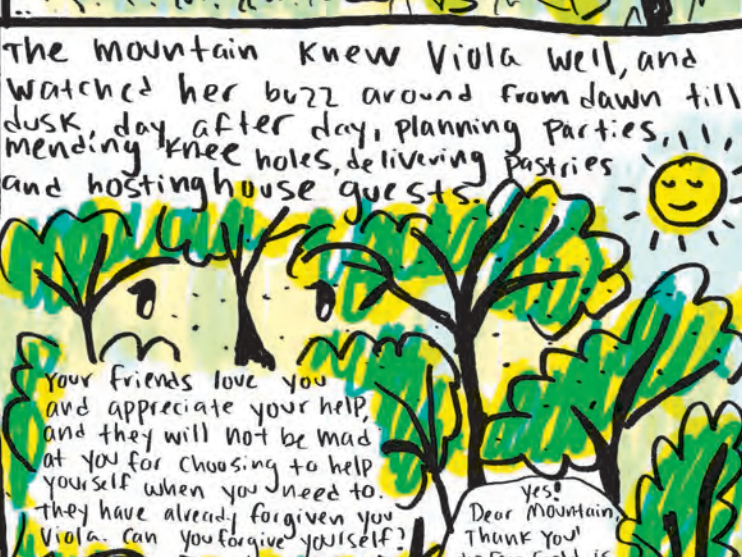 The mountain knew Viola well, and
watched her buzz around from dawn till
dusk, day after day, planning parties,
mending knee holes, delivering pastries
and hosting house guests.
Your friends love you
and appreciate your help,
and they will not be mad
at you for choosing to help
yourself when you need to.
They have already forgiven you
Viola. Can you forgive yourself?
Yes!
Dear Mountain,
Thank you!